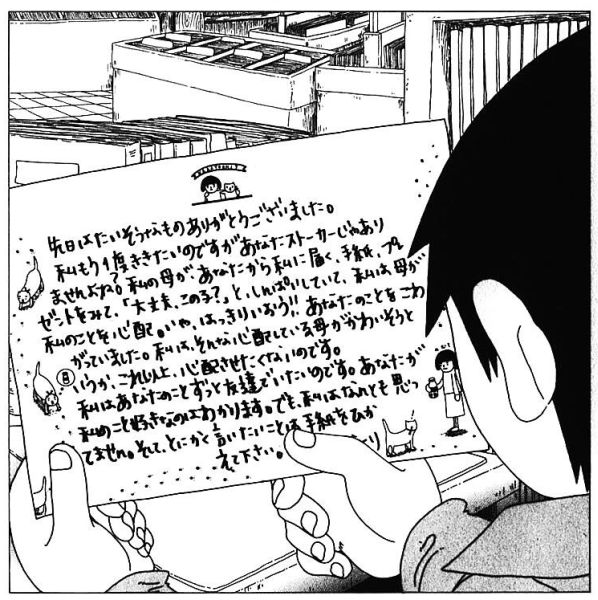 先日はたいそうなものありがとうございました。
私もう1度ききたいのですがあなたストーカーじゃあり
ませんよね？私の母が、あなたから私に届く、手紙、プレ
ゼントをみて、「大丈夫、この子？」と、しんぱいしていて、私は母が
私のことを心配。いや、はっきりいおう!! あなたのことをこわ
がっていました。私は、そんな心配している母がかわいそうと
いうか、これ以上、心配させたくないのです。
私はあなたのことずっと友達でいたいのです。あなたが
私のこと好きなのはわかります。でも、私はなんとも思っ
てません。そして、とにかく言いたいことは手紙をひか
えて下さい。
より